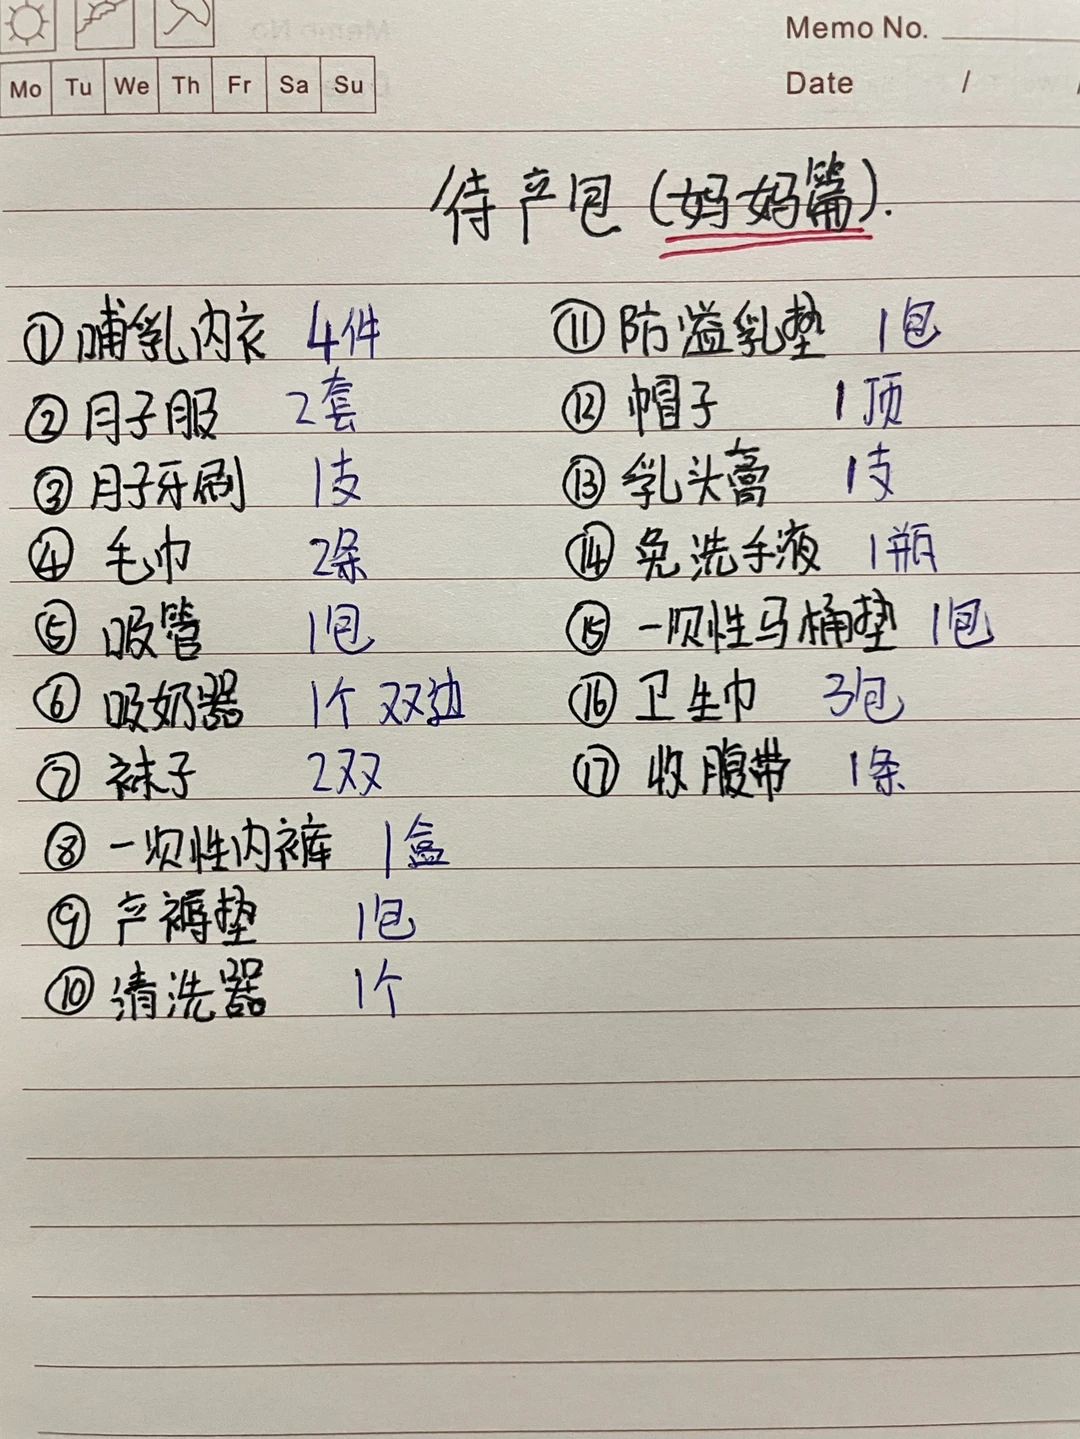 Memo No.
Mo Tu We Th Fr Sa Su
Date / /
待产包(妈妈篇).
①哺乳内衣 4件
②月子服 2套
③月子牙刷 1支
④毛巾 2条
⑤吸管 1包
⑥吸奶器 1个 双边
⑦袜子 2双
⑧一次性内裤 1盒
⑨产褥垫 1包
⑩清洗器 1个
⑪防溢乳垫 1包
⑫帽子 1顶
⑬乳头膏 1支
⑭免洗手液 1瓶
⑮一次性马桶垫 1包
⑯卫生巾 3包
⑰收腹带 1条